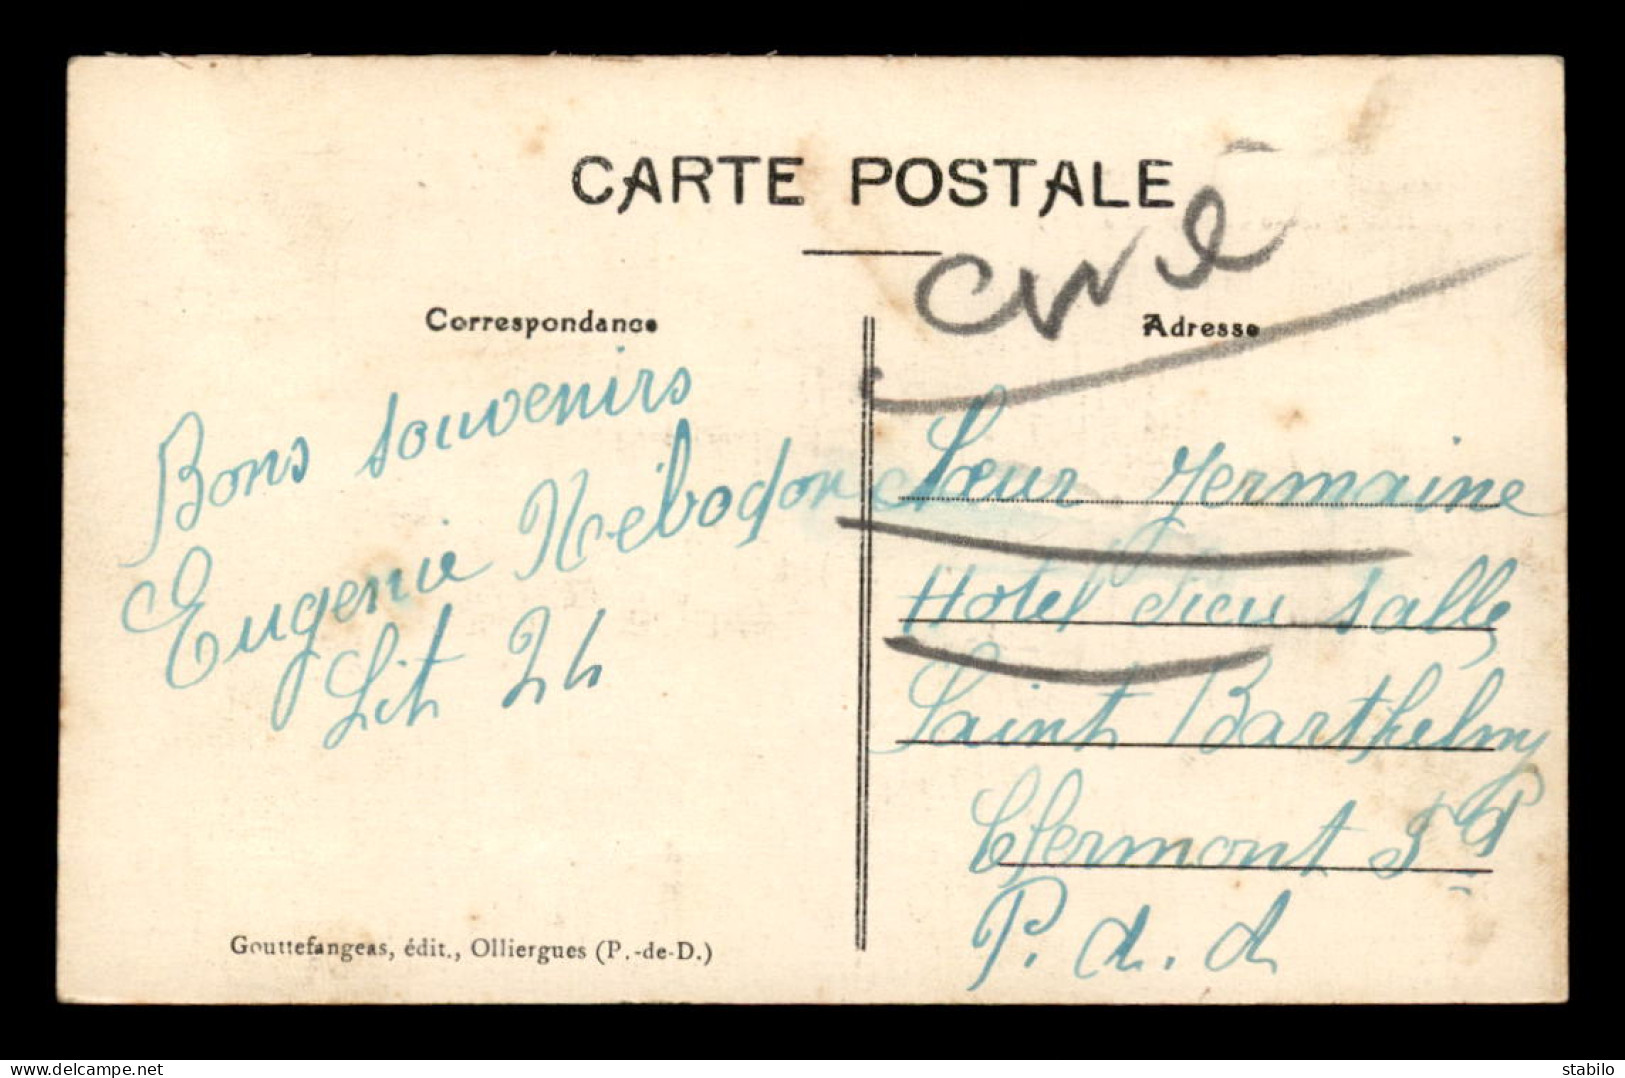 CARTE POSTALE
Correspondance
Bons souvenirs
Eugenie
Lit 24
Gouttefangeas, édit., Olliergues (P.-de-D.)
Adresse
Sœur Germaine
Hotel dieu salle
Saint Barthelmy
Clermont
P. d. d
www.delcampe.net
stabilo